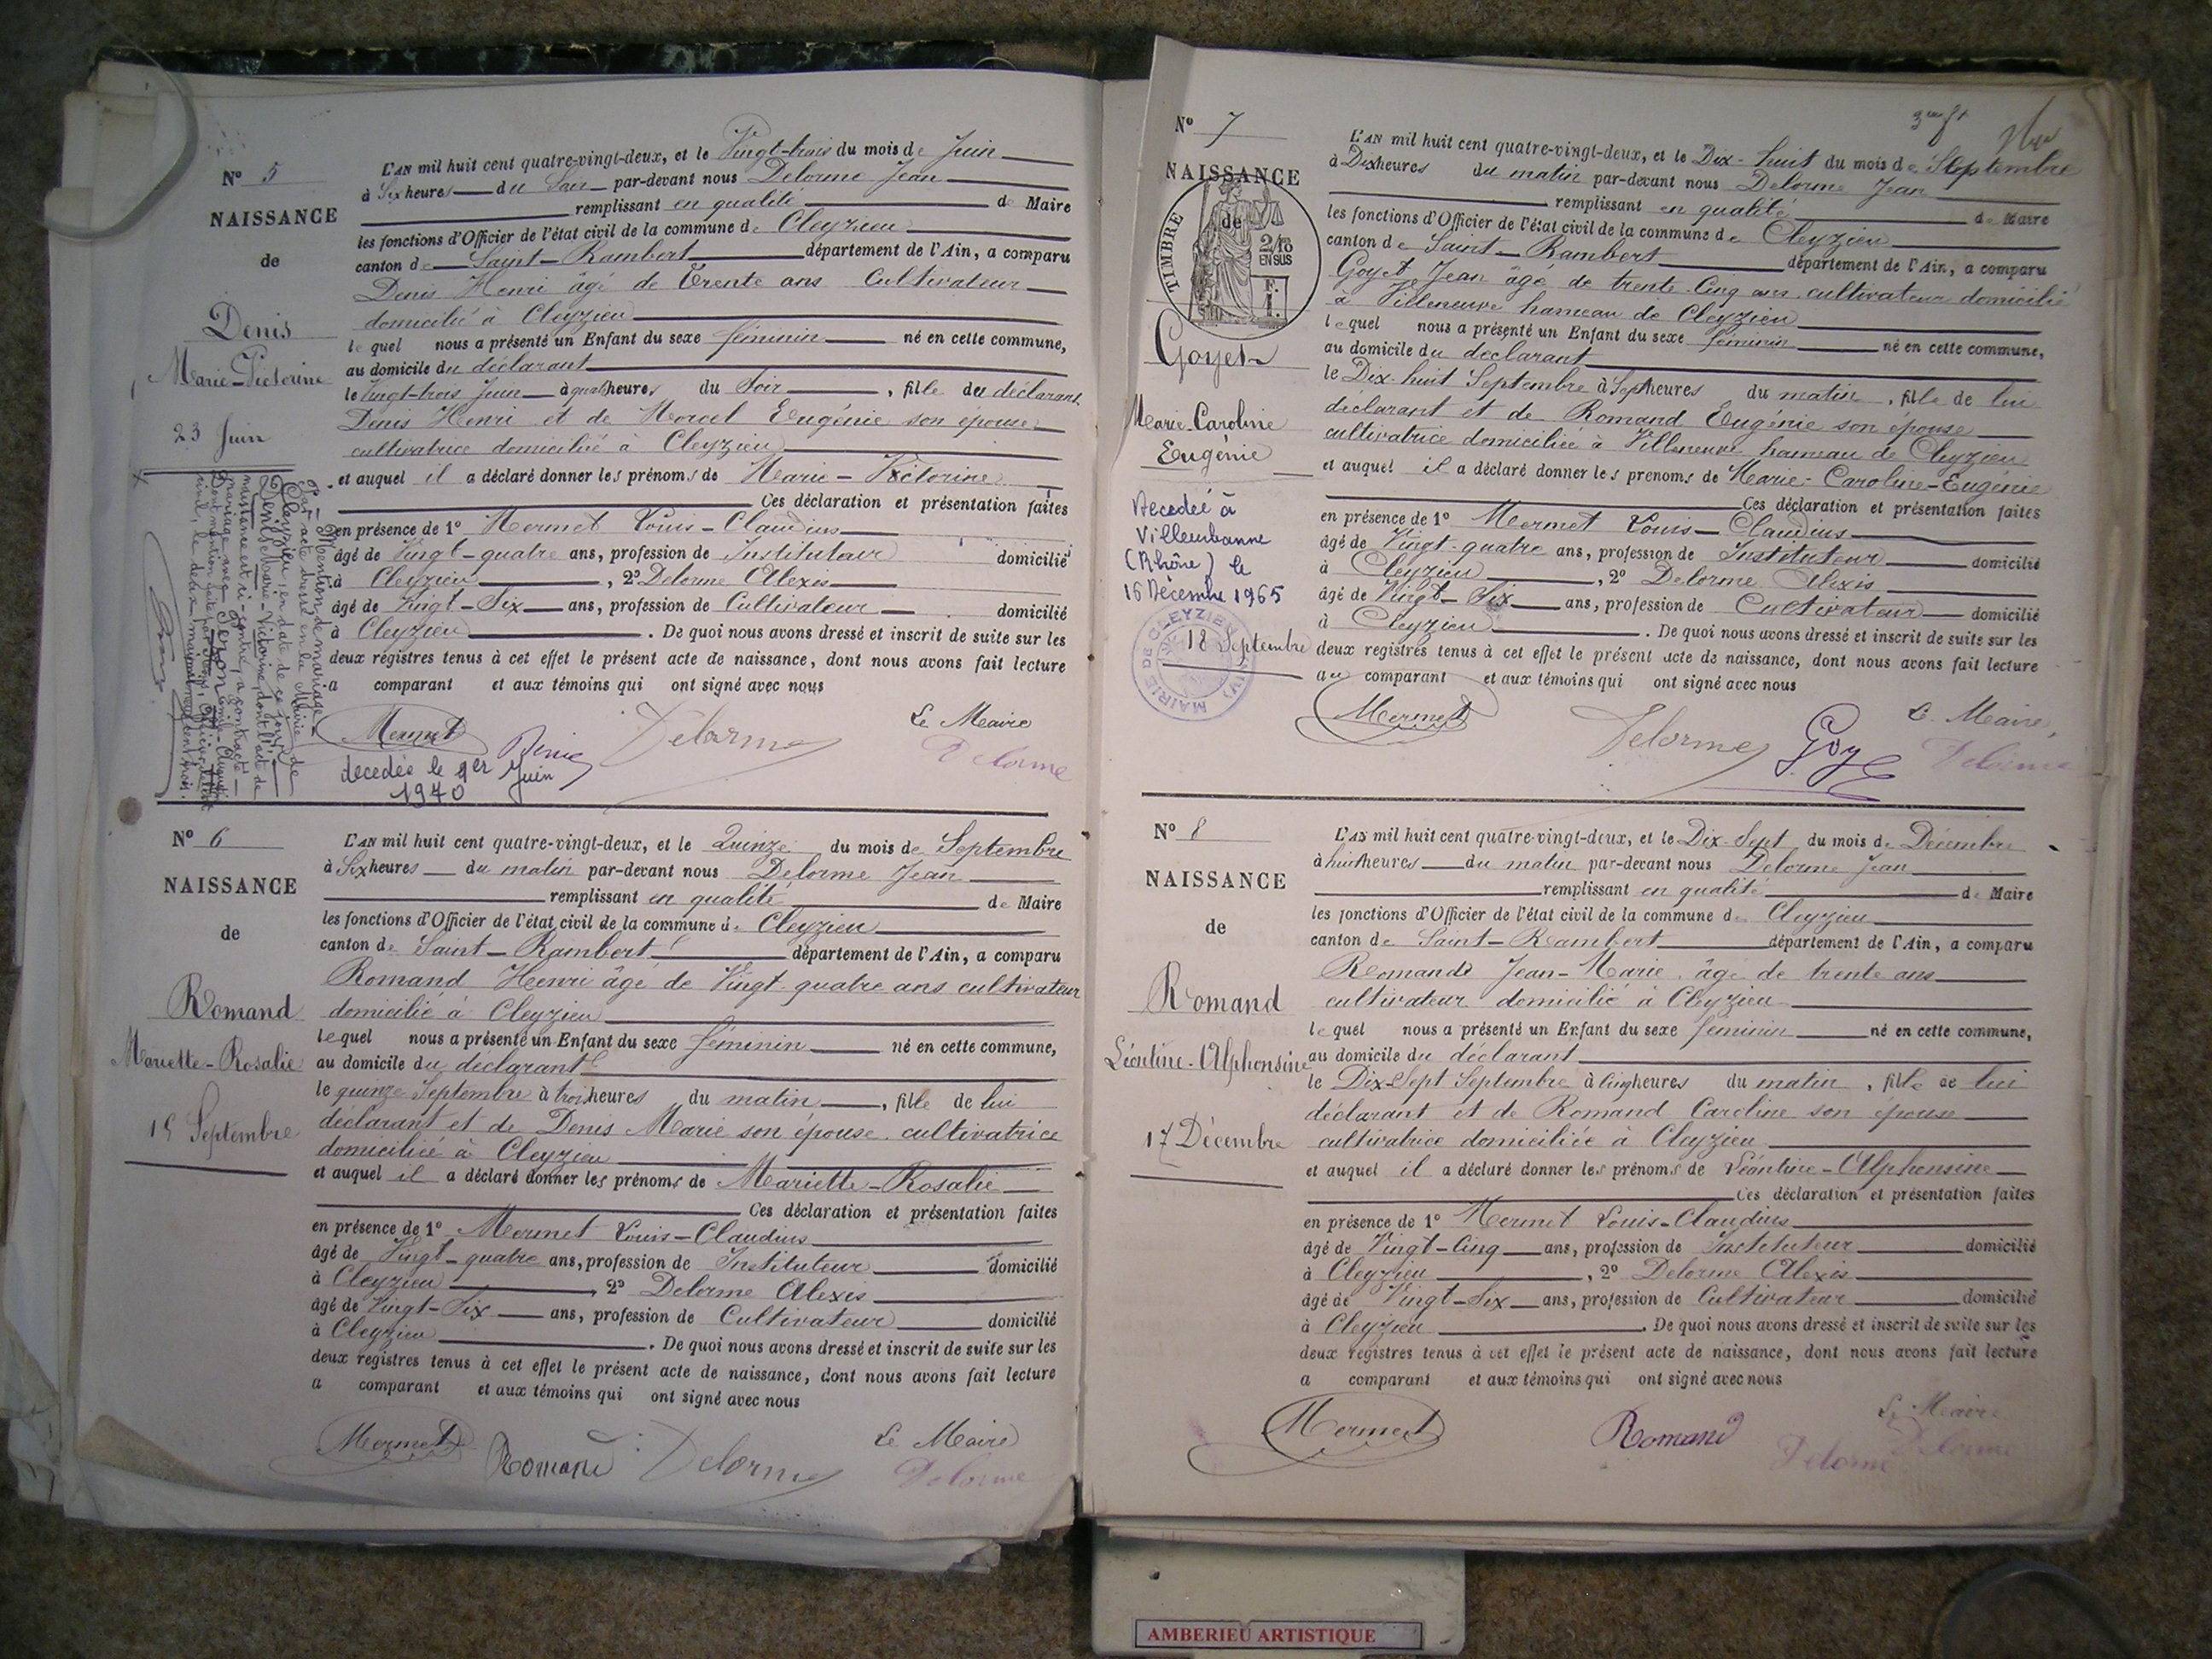 Nº 5
NAISSANCE
de
Denis
Marie-Victorine
23 Juin
L'AN mil huit cent quatre-vingt-deux, et le Vingt-trois du mois de Juin
à Six heures du Soir par-devant nous Delorme Jean
remplissant en qualité de Maire
les fonctions d'Officier de l'état civil de la commune de Cleyzieu
canton de Saint-Rambert département de l'Ain, a comparu
Denis Henri âgé de Trente ans Cultivateur
domicilié à Cleyzieu
lequel nous a présenté un Enfant du sexe féminin né en cette commune,
au domicile du déclarant
le Vingt-trois Juin à quatre heures du Soir, fille du déclarant
Denis Henri et de Morcel Eugénie son épouse
cultivatrice domiciliée à Cleyzieu
et auquel il a déclaré donner les prénoms de Marie-Victorine
Ces déclaration et présentation faites
en présence de 1º Mermet Louis-Claudius
âgé de Vingt-quatre ans, profession de Instituteur domicilié
à Cleyzieu, 2º Delorme Alexis
âgé de Vingt-Six ans, profession de Cultivateur domicilié
à Cleyzieu. De quoi nous avons dressé et inscrit de suite sur les
deux registres tenus à cet effet le présent acte de naissance, dont nous avons fait lecture
a comparant et aux témoins qui ont signé avec nous
Le Maire
Mermet Denis Delorme Delorme
decedée le 1er Juin
1970
Mention de mariage
Par acte dressé en la Mairie de
Cleyzieu, en date de ce jour,
Denis Marie-Victorine, dont l'acte de
naissance est ci-contre, a contracté
mariage avec
Nº 6
NAISSANCE
de
Romand
Mariette-Rosalie
15 Septembre
L'AN mil huit cent quatre-vingt-deux, et le Quinze du mois de Septembre
à Six heures du matin par-devant nous Delorme Jean
remplissant en qualité de Maire
les fonctions d'Officier de l'état civil de la commune de Cleyzieu
canton de Saint-Rambert département de l'Ain, a comparu
Romand Henri âgé de Vingt quatre ans cultivateur
domicilié à Cleyzieu
lequel nous a présenté un Enfant du sexe féminin né en cette commune,
au domicile du déclarant
le quinze Septembre à trois heures du matin, fille de lui
déclarant et de Denis Marie son épouse, cultivatrice
domiciliée à Cleyzieu
et auquel il a déclaré donner les prénoms de Mariette-Rosalie
Ces déclaration et présentation faites
en présence de 1º Mermet Louis-Claudius
âgé de Vingt-quatre ans, profession de Instituteur domicilié
à Cleyzieu, 2º Delorme Alexis
âgé de Vingt-Six ans, profession de Cultivateur domicilié
à Cleyzieu. De quoi nous avons dressé et inscrit de suite sur les
deux registres tenus à cet effet le présent acte de naissance, dont nous avons fait lecture
a comparant et aux témoins qui ont signé avec nous
Le Maire
Mermet Romand Delorme Delorme
Nº 7
NAISSANCE
de
TIMBRE
2/10
EN SUS
F.
1.
Goyet
Marie-Caroline
Eugénie
Decedée à
Villeurbanne
(Rhône) le
16 Décembre 1965
18 Septembre
MAIRIE DE CLEYZIEU (AIN)
L'AN mil huit cent quatre-vingt-deux, et le Dix-huit du mois de Septembre
à Dix heures du matin par-devant nous Delorme Jean
remplissant en qualité de Maire
les fonctions d'Officier de l'état civil de la commune de Cleyzieu
canton de Saint-Rambert département de l'Ain, a comparu
Goyet Jean âgé de trente-cinq ans, cultivateur domicilié
à Villeneuve hameau de Cleyzieu
lequel nous a présenté un Enfant du sexe féminin né en cette commune,
au domicile du déclarant
le Dix-huit Septembre à Sept heures du matin, fille de lui
déclarant et de Romand Eugénie son épouse
cultivatrice domiciliée à Villeneuve hameau de Cleyzieu
et auquel il a déclaré donner les prénoms de Marie-Caroline-Eugénie
Ces déclaration et présentation faites
en présence de 1º Mermet Louis-Claudius
âgé de Vingt-quatre ans, profession de Instituteur domicilié
à Cleyzieu, 2º Delorme Alexis
âgé de Vingt-Six ans, profession de Cultivateur domicilié
à Cleyzieu. De quoi nous avons dressé et inscrit de suite sur les
deux registres tenus à cet effet le présent acte de naissance, dont nous avons fait lecture
au comparant et aux témoins qui ont signé avec nous
Le Maire,
Mermet Delorme Goyet Delorme
Nº 8
NAISSANCE
de
Romand
Léontine-Alphonsine
17 Décembre
L'AN mil huit cent quatre-vingt-deux, et le Dix-Sept du mois de Décembre
à huit heures du matin par-devant nous Delorme Jean
remplissant en qualité de Maire
les fonctions d'Officier de l'état civil de la commune de Cleyzieu
canton de Saint-Rambert département de l'Ain, a comparu
Romand Jean-Marie, âgé de trente ans
cultivateur domicilié à Cleyzieu
lequel nous a présenté un Enfant du sexe féminin né en cette commune,
au domicile du déclarant
le Dix-Sept Septembre à Cinq heures du matin, fille de lui
déclarant et de Romand Caroline son épouse
cultivatrice domiciliée à Cleyzieu
et auquel il a déclaré donner les prénoms de Léontine-Alphonsine
Ces déclaration et présentation faites
en présence de 1º Mermet Louis-Claudius
âgé de Vingt-Cinq ans, profession de Instituteur domicilié
à Cleyzieu, 2º Delorme Alexis
âgé de Vingt-Six ans, profession de Cultivateur domicilié
à Cleyzieu. De quoi nous avons dressé et inscrit de suite sur les
deux registres tenus à cet effet le présent acte de naissance, dont nous avons fait lecture
a comparant et aux témoins qui ont signé avec nous
Le Maire
Mermet Romand Delorme Delorme
AMBERIEU ARTISTIQUE